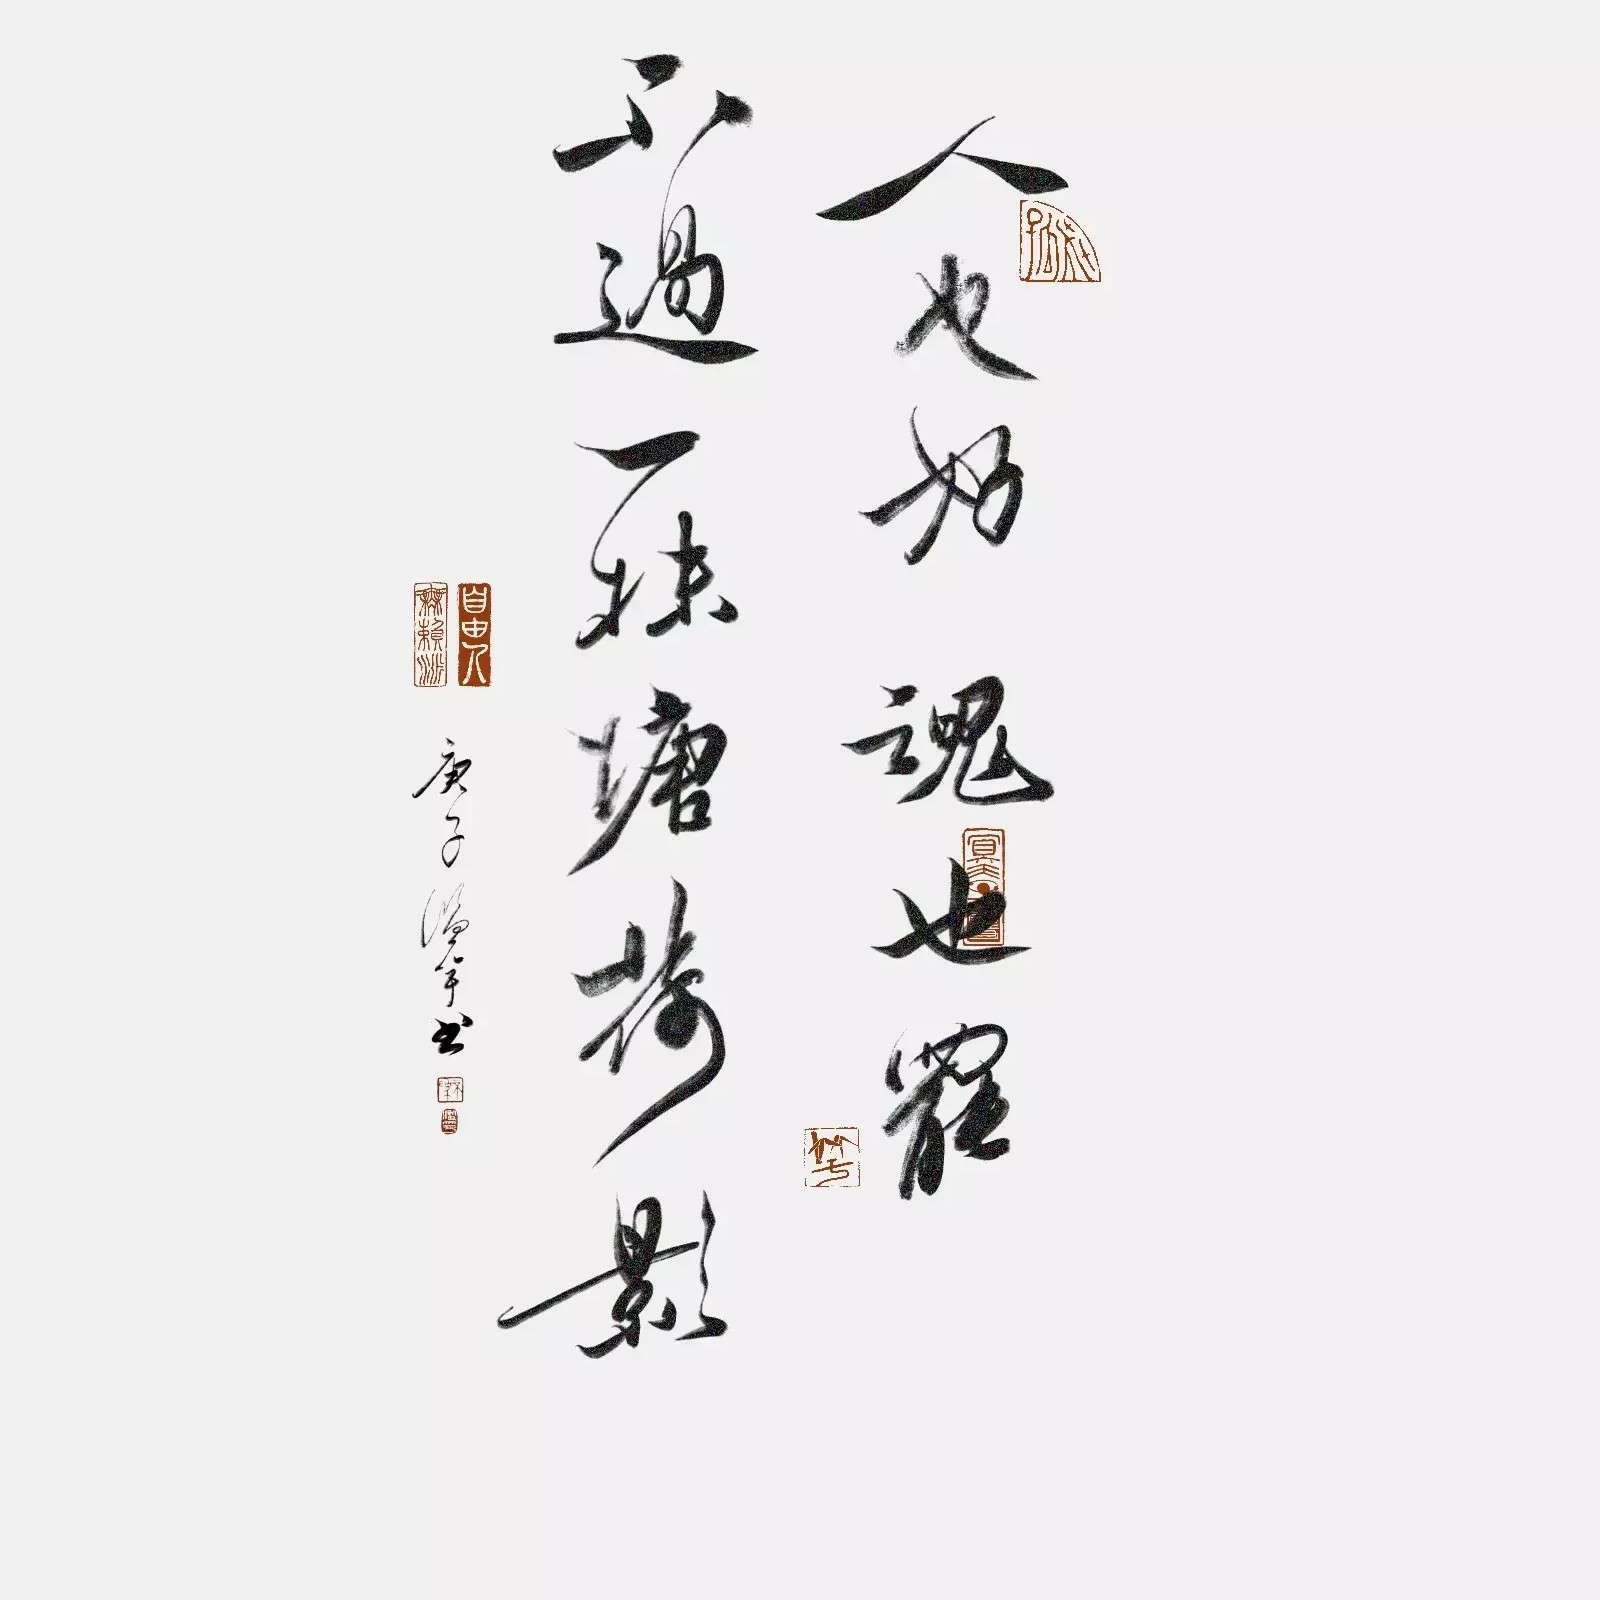 人也好魂也罷
不過一抹塘荷影
庚子
书
自由人
無賴